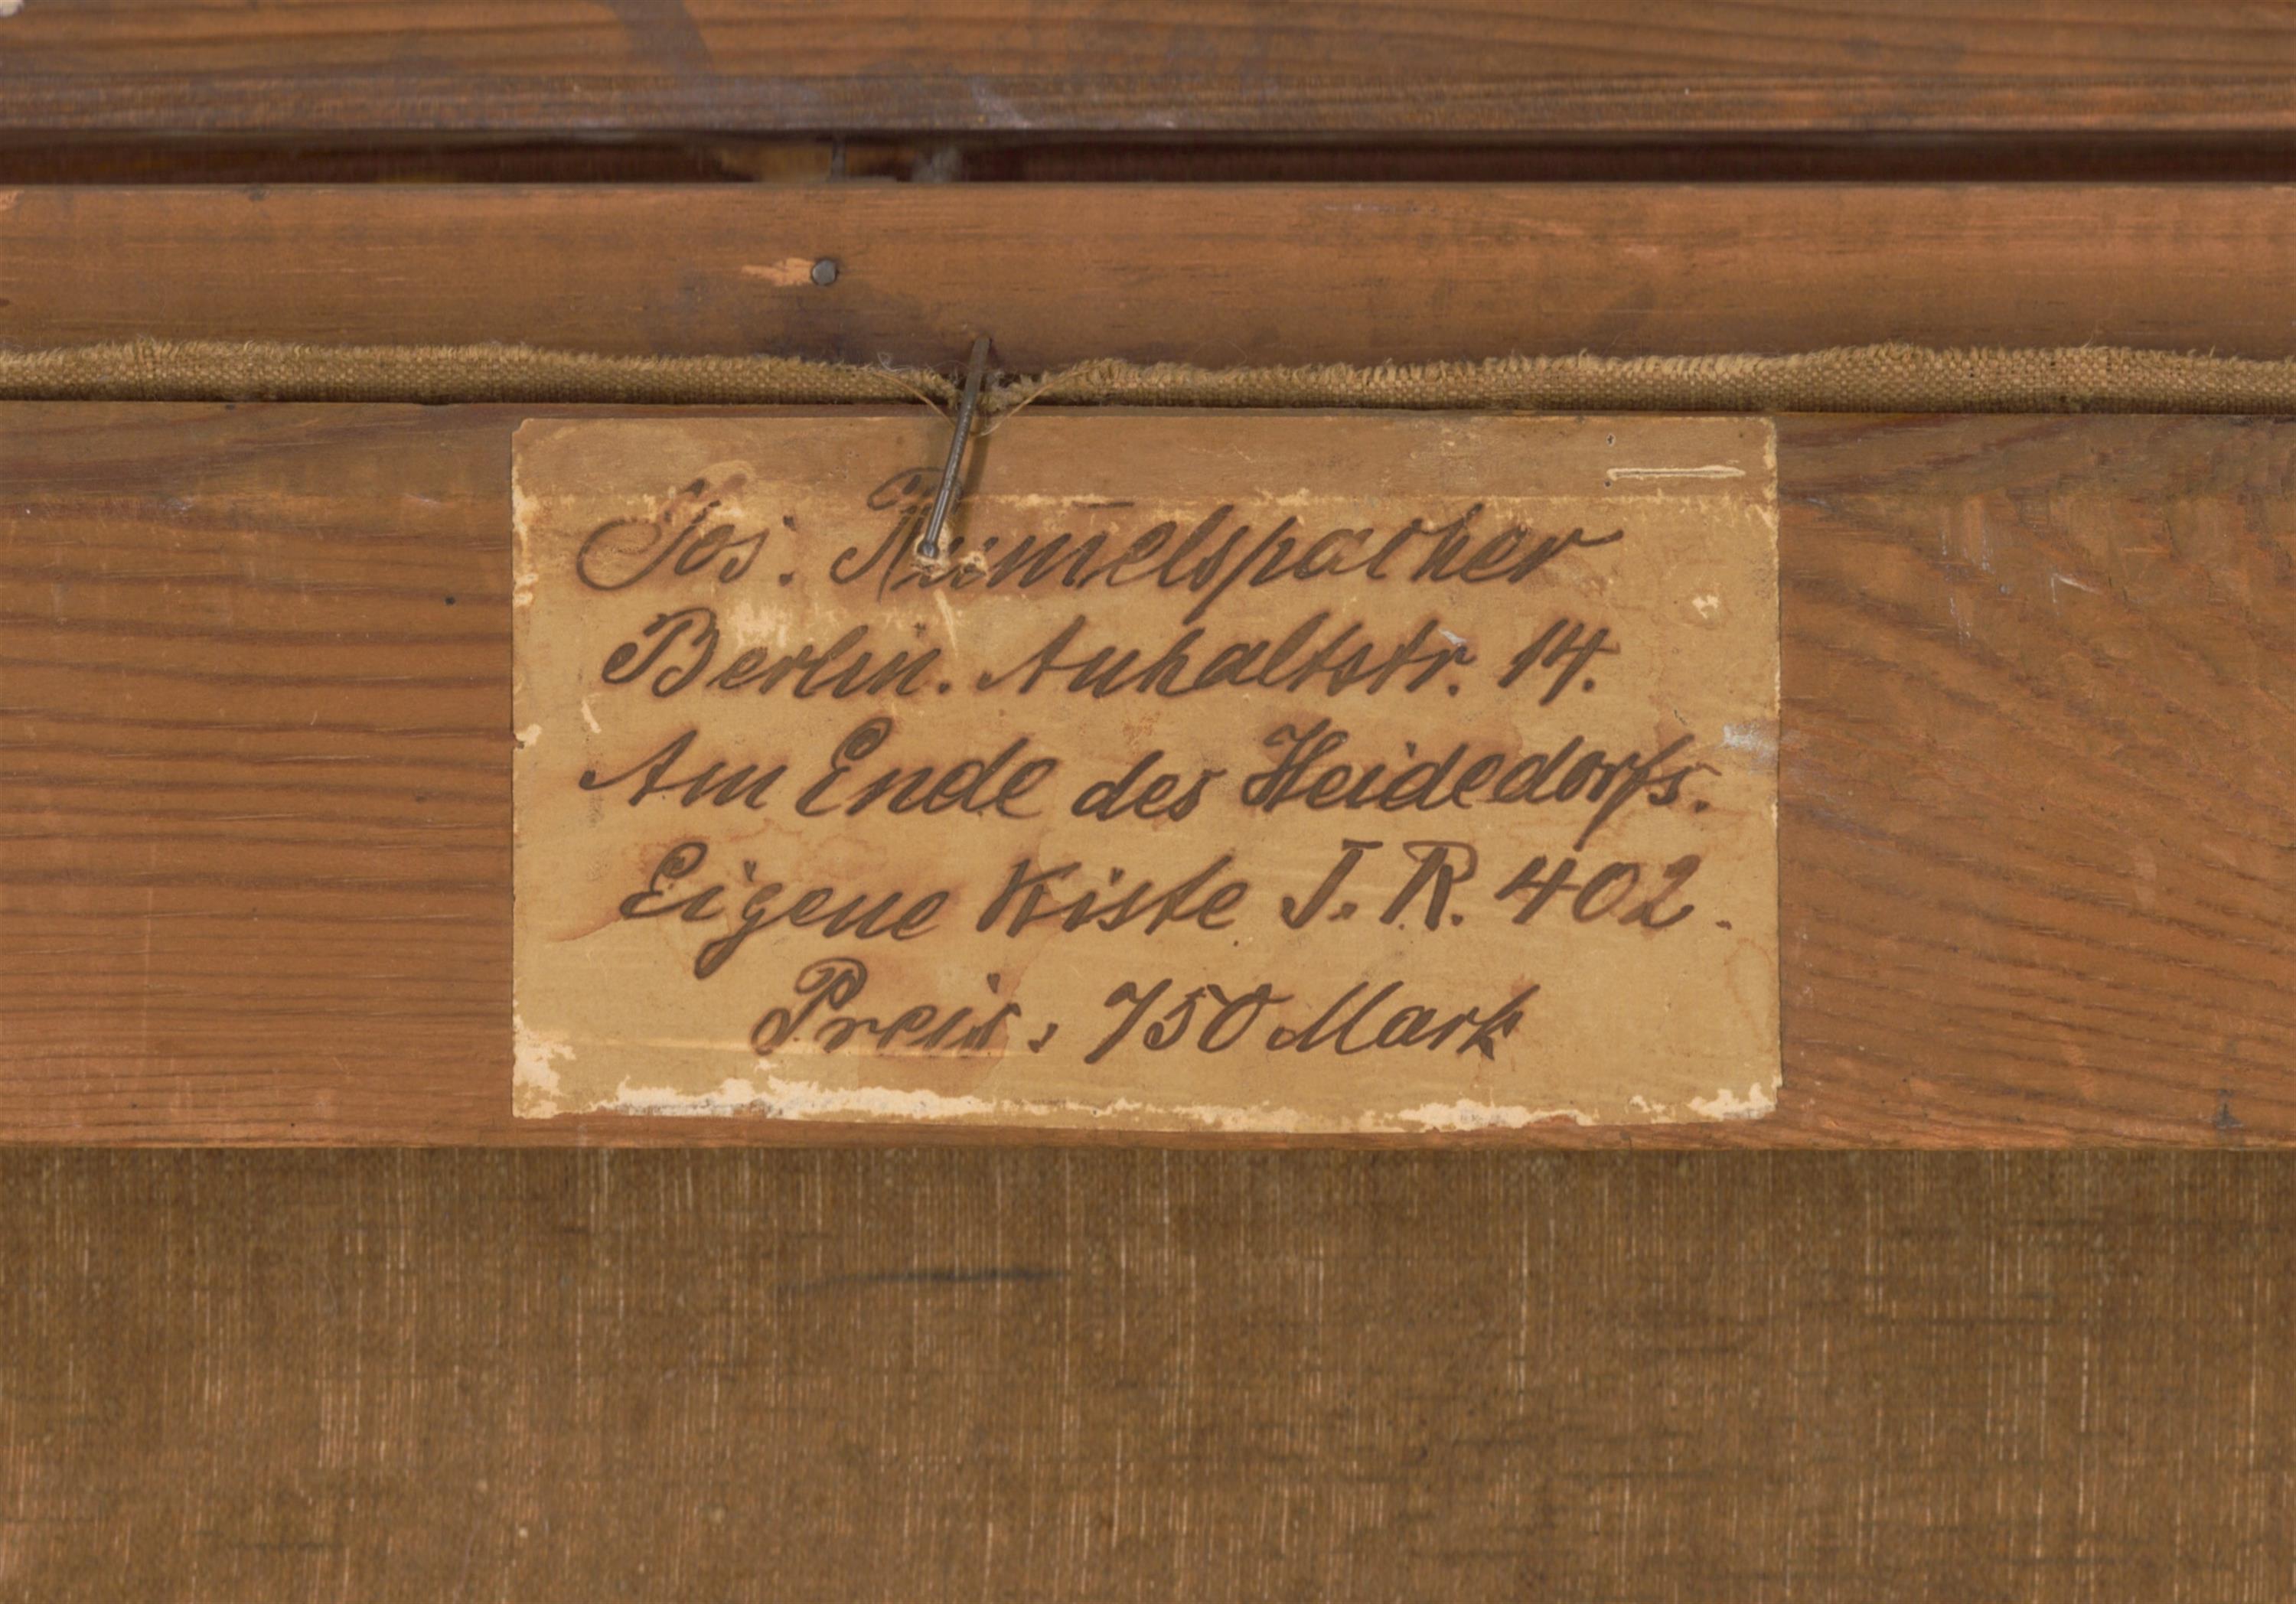 Jos. Rum̅elspacher
Berlin. Anhaltstr. 14.
Am Ende des Heidedorfs.
Eigene Kiste J. R. 402.
Preis: 750 Mark